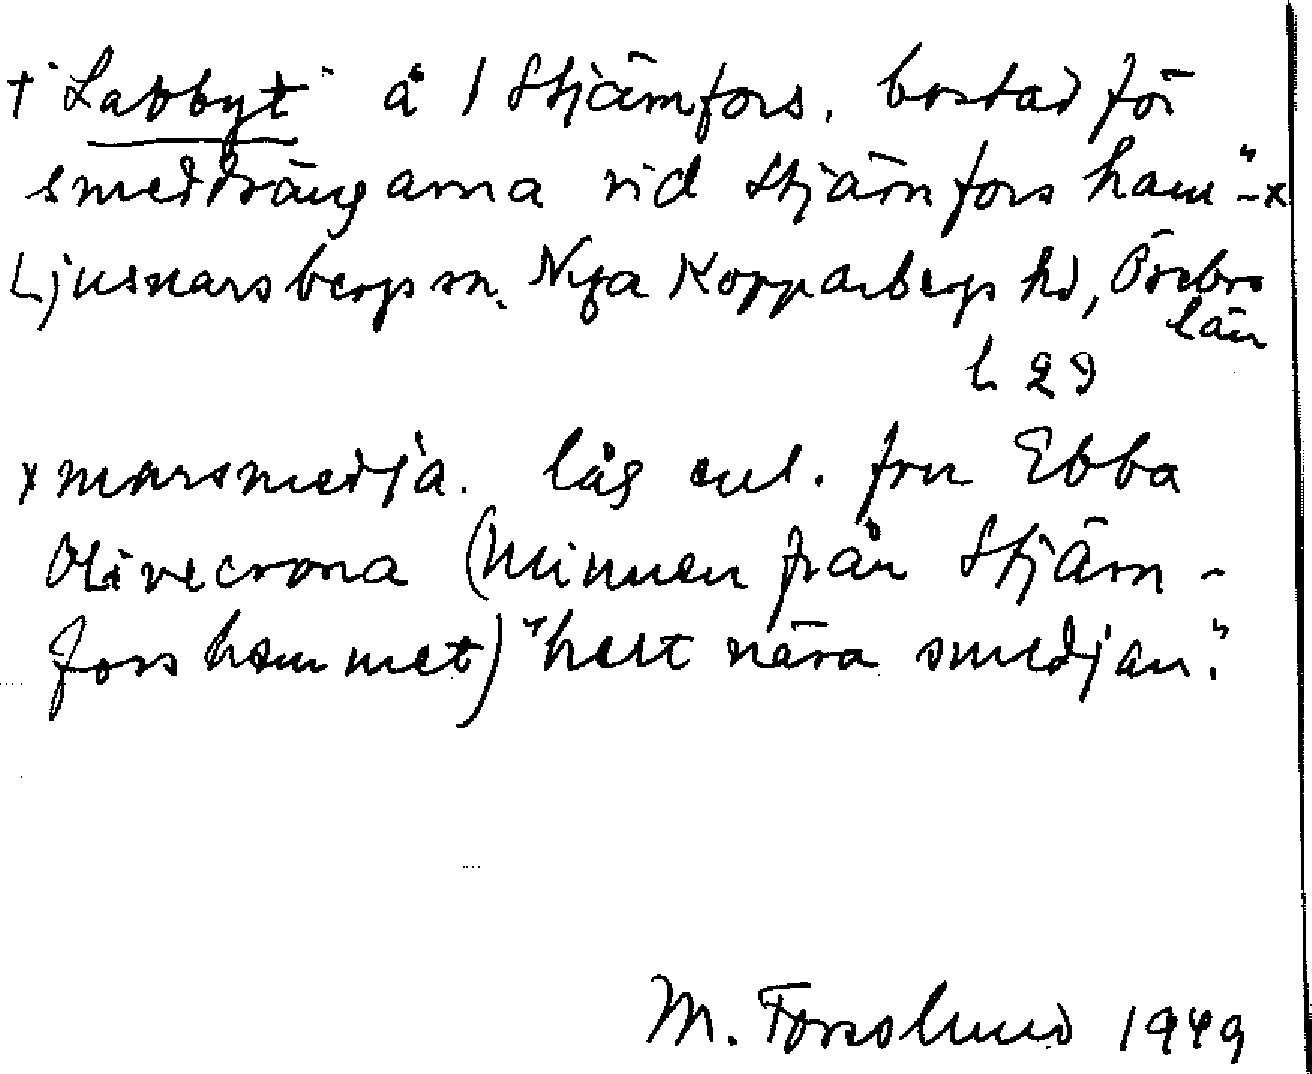 † "Labbyt" å 1 Stjärnfors. bostad för
smeddrängarna vid Stjärnfors ham"-x
Ljusnarsbergs sn. Nya Kopparbergs hd, Örebro
län
L 29
x marsmedja. låg enl. fru Ebba
Olivecrona (Minnen från Stjärn-
forshemmet) "helt nära smedjan."
M. Forslund 1949